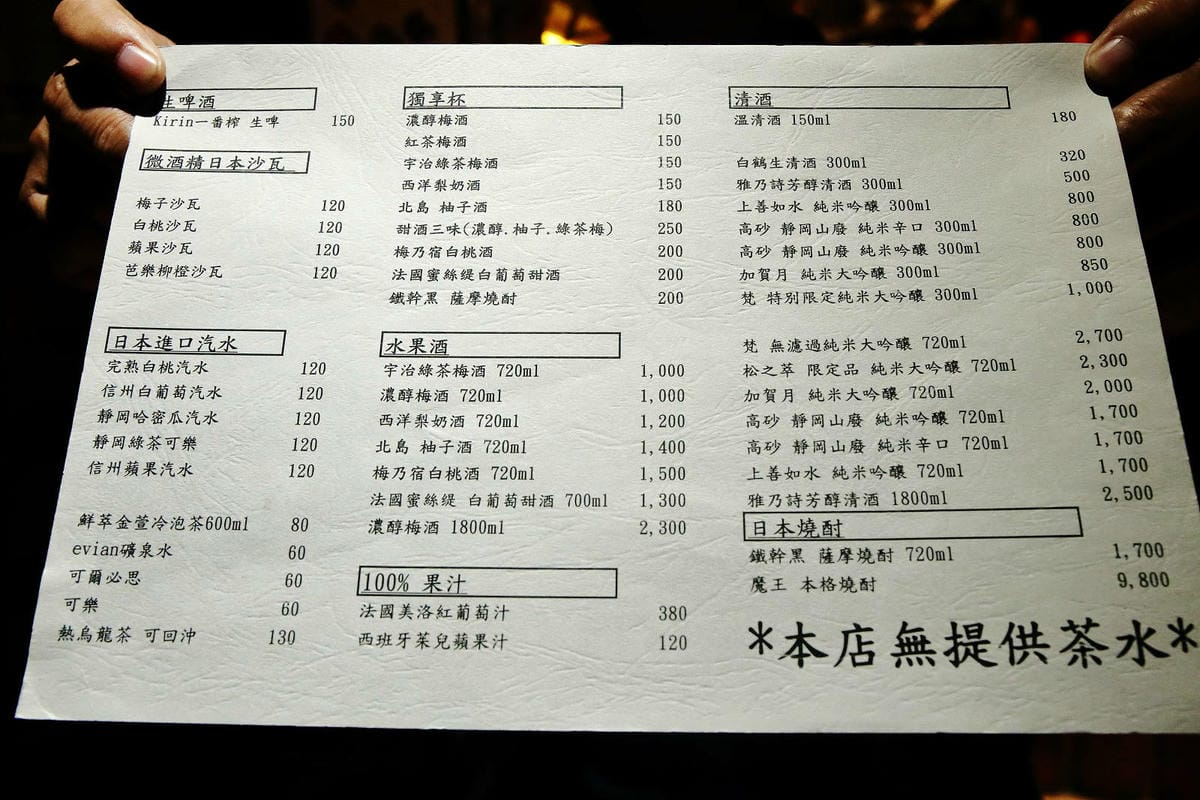 生啤酒
Kirin一番榨 生啤 150
微酒精日本沙瓦
梅子沙瓦 120
白桃沙瓦 120
蘋果沙瓦 120
芭樂柳橙沙瓦 120
日本進口汽水
完熟白桃汽水 120
信州白葡萄汽水 120
靜岡哈密瓜汽水 120
靜岡綠茶可樂 120
信州蘋果汽水 120
鮮萃金萱冷泡茶600ml 80
evian礦泉水 60
可爾必思 60
可樂 60
熱烏龍茶 可回沖 130
獨享杯
濃醇梅酒 150
紅茶梅酒 150
宇治綠茶梅酒 150
西洋梨奶酒 150
北島 柚子酒 180
甜酒三味(濃醇.柚子.綠茶梅) 250
梅乃宿白桃酒 200
法國蜜絲緹白葡萄甜酒 200
鐵幹黑 薩摩燒酎 200
水果酒
宇治綠茶梅酒 720ml 1,000
濃醇梅酒 720ml 1,000
西洋梨奶酒 720ml 1,200
北島 柚子酒 720ml 1,400
梅乃宿白桃酒 720ml 1,500
法國蜜絲緹 白葡萄甜酒 700ml 1,300
濃醇梅酒 1800ml 2,300
100% 果汁
法國美洛紅葡萄汁 380
西班牙茱兒蘋果汁 120
清酒
溫清酒 150ml 180
白鶴生清酒 300ml 320
雅乃詩芳醇清酒 300ml 500
上善如水 純米吟釀 300ml 800
高砂 靜岡山廢 純米辛口 300ml 800
高砂 靜岡山廢 純米吟釀 300ml 800
加賀月 純米大吟釀 300ml 850
梵 特別限定純米大吟釀 300ml 1,000
梵 無濾過純米大吟釀 720ml 2,700
松之萃 限定品 純米大吟釀 720ml 2,300
加賀月 純米大吟釀 720ml 2,000
高砂 靜岡山廢 純米吟釀 720ml 1,700
高砂 靜岡山廢 純米辛口 720ml 1,700
上善如水 純米吟釀 720ml 1,700
雅乃詩芳醇清酒 1800ml 2,500
日本燒酎
鐵幹黑 薩摩燒酎 720ml 1,700
魔王 本格燒酎 9,800
*本店無提供茶水*